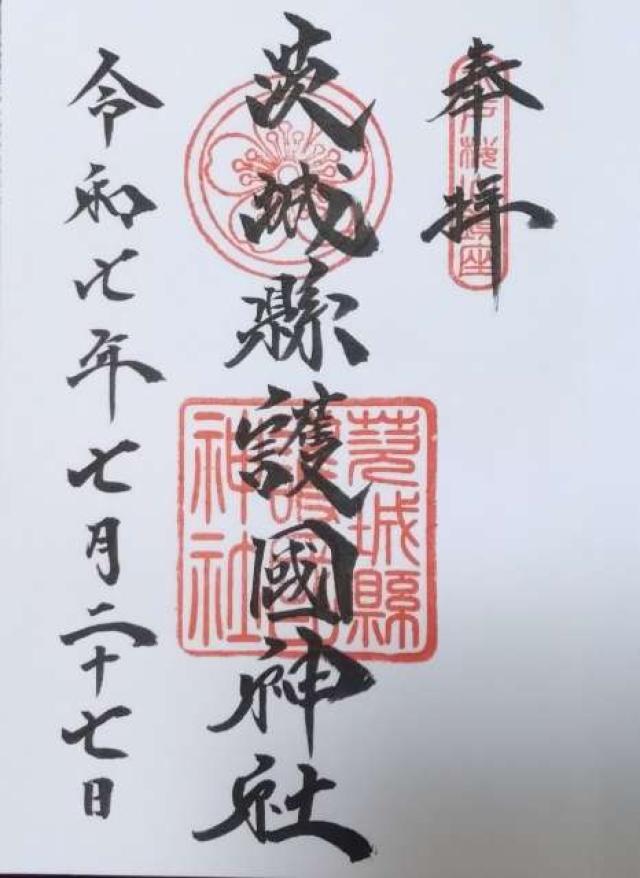 奉拝
茨城縣護國神社
令和七年七月二十七日
茨城縣
護國
神社